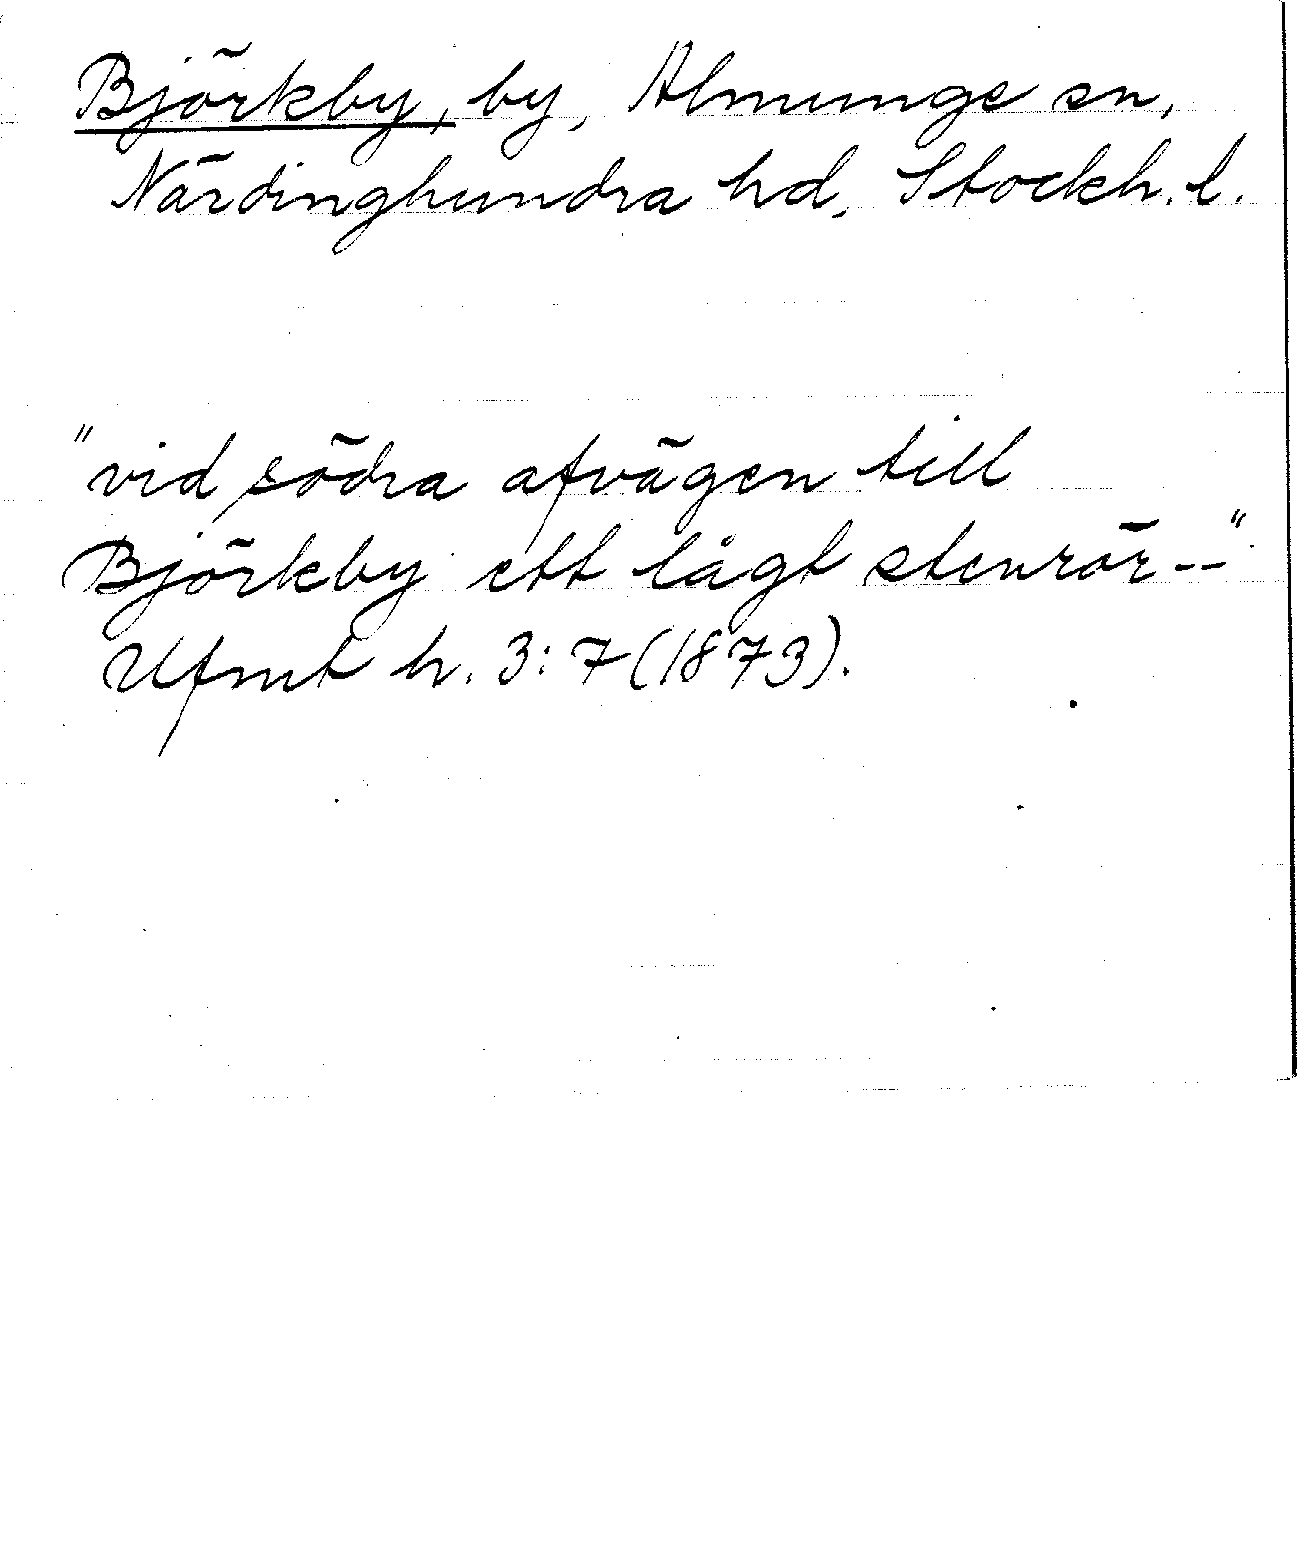 Björkby, by, Almunge sn,
Närdinghundra hd, Stockh. l.
"vid södra afvägen till
Björkby ett lågt stenrör--"
Ufmt h. 3:7(1873).